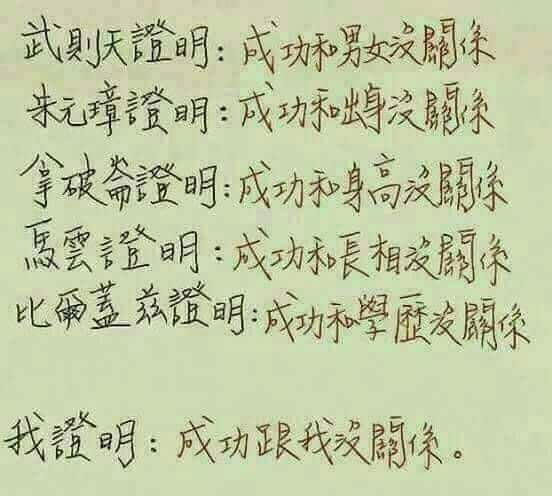 武則天證明：成功和男女沒關係
朱元璋證明：成功和出身沒關係
拿破崙證明：成功和身高沒關係
馬雲證明：成功和長相沒關係
比爾蓋茲證明：成功和學歷沒關係
我證明：成功跟我沒關係。